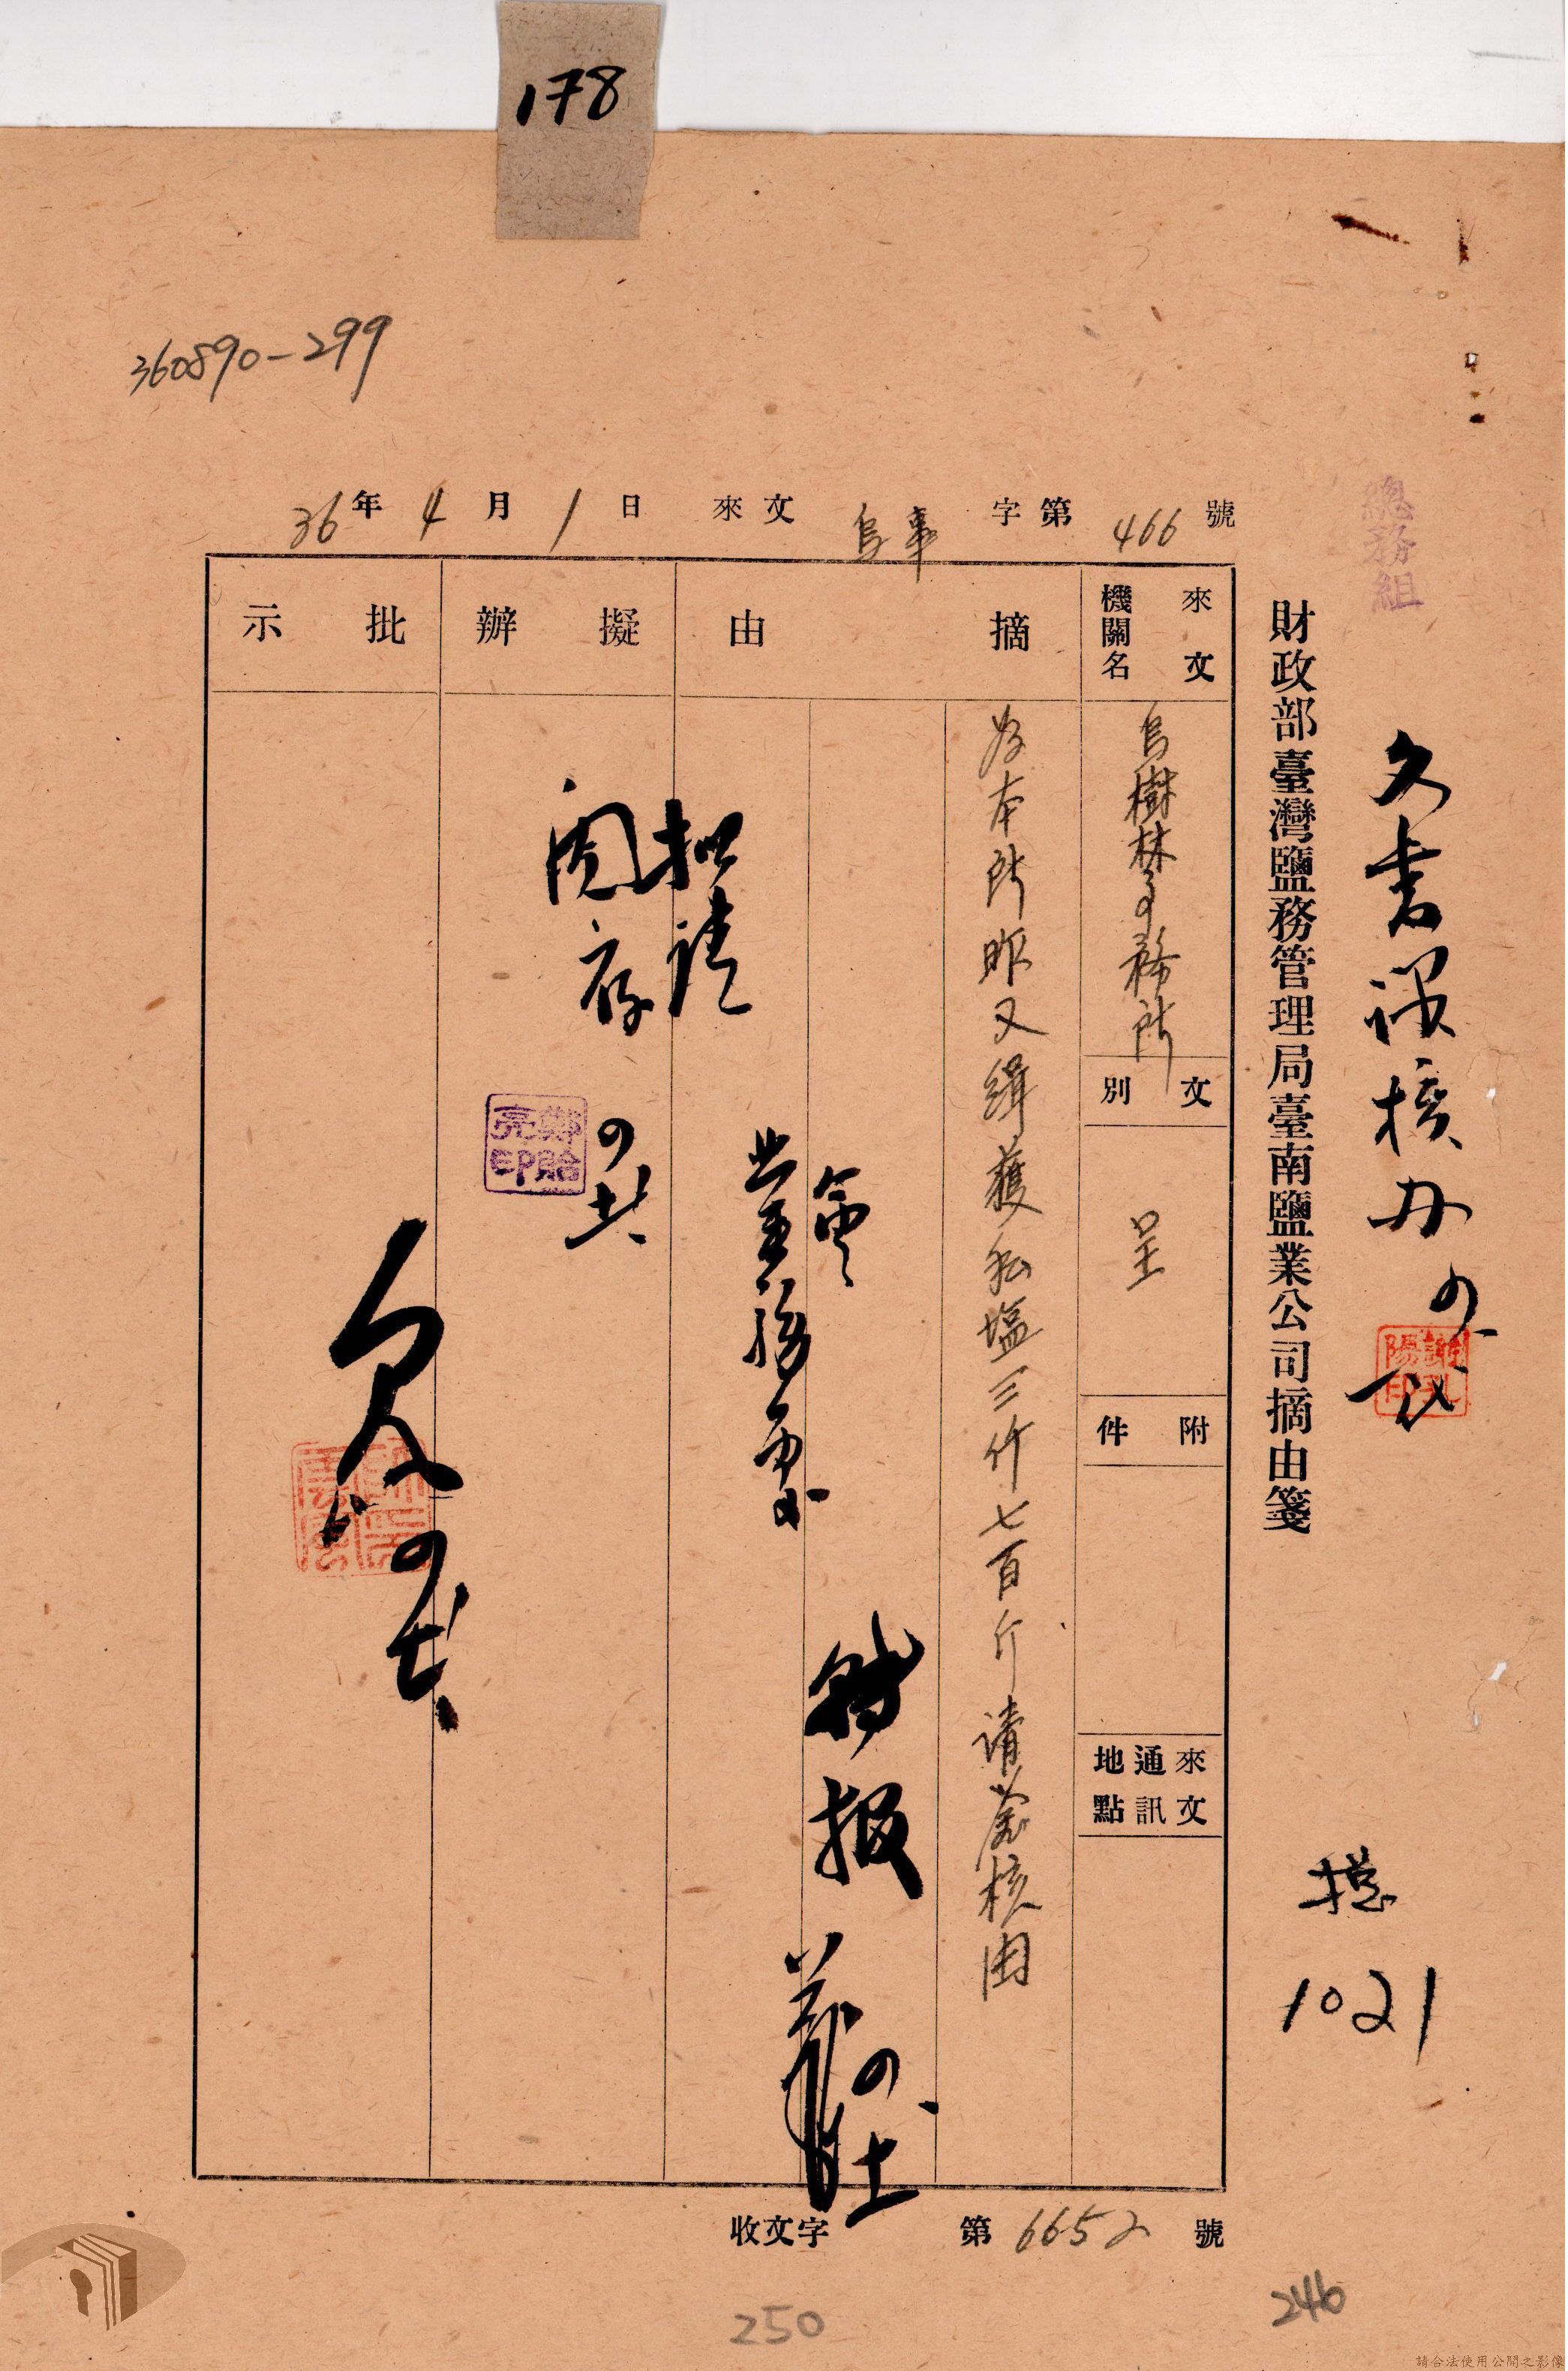 178
360890-299
總務組
文書課核办
謝
陽印
總
1021
財政部臺灣鹽務管理局臺南鹽業公司摘由箋
36年4月1日 來文 烏事 字第466號
來文機關名
烏樹林事務所
文別
呈
附件
來文通訊地點
摘由
為本所昨又緝獲私塩三仟七百斤請鑒核由
轉报
會
業務课
擬辦
拟請
閱存
鄭貽
亮印
批示
收文字第6652號
250
246
請合法使用公開之影像